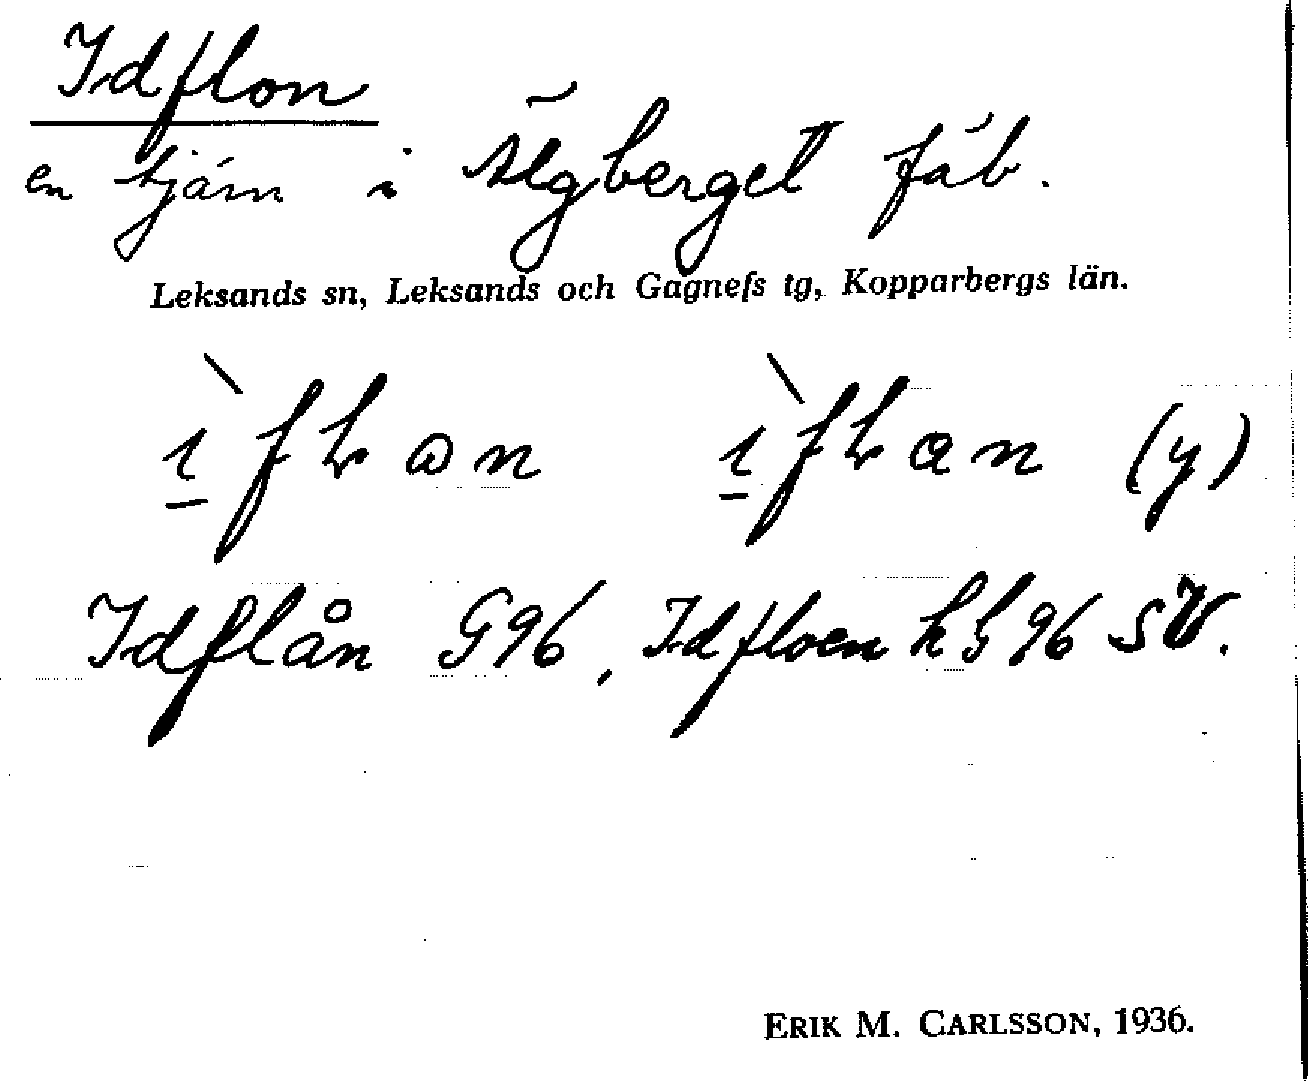 Idflon
en tjärn i Älgberget fäb.
Leksands sn, Leksands och Gagnefs tg, Kopparbergs län.
(y)
Idflån G96, Idfloen hG96 SV.
ERIK M. CARLSSON, 1936.